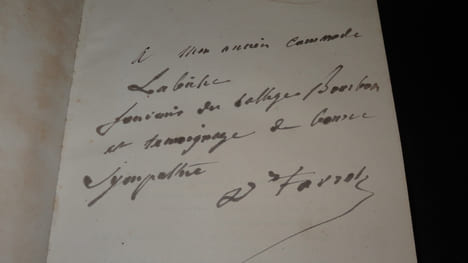 A mon ancien camarade
Labiche
souvenir du collège Bourbon
et témoignage de bonne
Sympathie
Dr Favrot